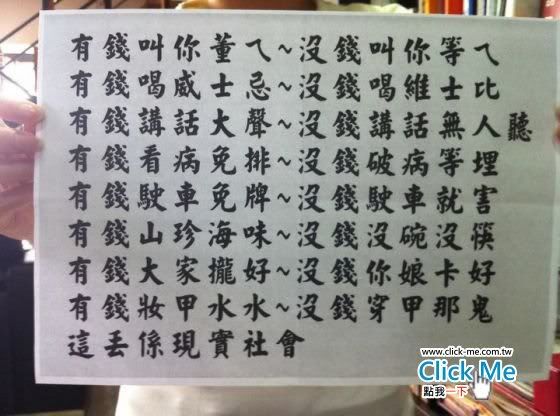 有錢叫你董ㄟ~沒錢叫你等ㄟ
有錢喝威士忌~沒錢喝維士比
有錢講話大聲~沒錢講話無人聽
有錢看病免排~沒錢破病等埋
有錢駛車免牌~沒錢駛車就害
有錢山珍海味~沒錢沒碗沒筷
有錢大家攏好~沒錢你娘卡好
有錢妝甲水水~沒錢穿甲那鬼
這丟係現實社會
www.click-me.com.tw
Click Me
點我一下